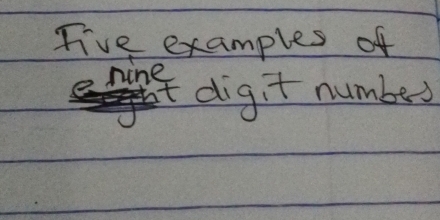 Five examples of
nine
eight digit numbers